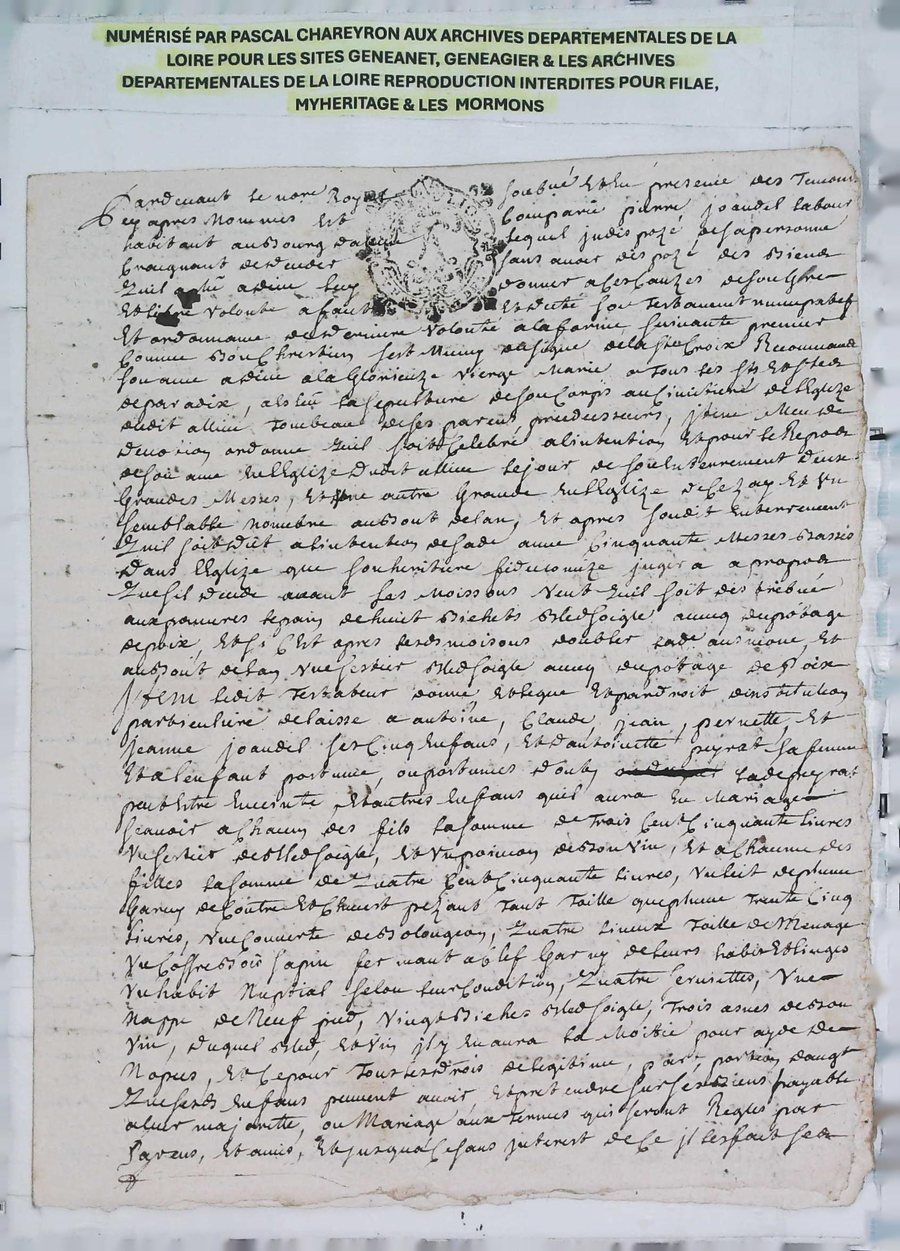 NUMÉRISÉ PAR PASCAL CHAREYRON AUX ARCHIVES DEPARTEMENTALES DE LA
LOIRE POUR LES SITES GENEANET, GENEAGIER & LES ARCHIVES
DEPARTEMENTALES DE LA LOIRE REPRODUCTION INTERDITES POUR FILAE,
MYHERITAGE & LES MORMONS
Pardevant le nore Royal soubné Et En presence des Temoins
cy apres Nommes Est Comparu pierre Joandel labour
habitant au Bourg lequel Judispozé de sa personne
Craignant de deceder sans avoir dispozé des Biens
quil a de dieu donner
Et libre volonte a fait Et dicté son Testament nuncupatif
Et ordonnance de derniere volonte a la forme suivante premier
Comme Bon Chrestien sest Muny du signe de la Ste Croix Recommandé
son ame a dieu a la Glorieuze vierge Marie a Tous les Sts Et Stes
de paradix, la sepulture de son Corps au Cimitiere de lEglize
dudit allieu Tombeau de ses parens predecesseurs, Jtem Meu de
devotion ordonne quil soit Celebré a lintention Et pour le Repos
de son ame En lEglize dudit allieu le jour de son Enterrement deux
Grandes Messes, Et Une autre Grande En lEglize de Cezay Et Un
semblable nombre au Bout de lan, Et apres soudit Enterrement
quil soit dit a lintention de sade ame Cinquante Messes Basses
dans lEglize que son heritiere fiduciaire jugera a propos
Que sil decede avant les Moissons Veut quil soit distribué
aux pauvres le pain de huit Bichets Bled soigle avecq du potage
de poix, Et si C'Est apres lesd moissons doubler lade aumone, Et
au Bout de lan Un sestier Bled soigle avecq du potage de Poix
Jtem ledit Testateur donne, Et legue Et par droit dinstitution
particuliere delaisse a antoine, Claude, Jean, pernette, Et
Jeanne Joandel ses Cinq Enfans, Et d'antoinette peyrat sa femme
Et a lenfant postume, ou postumes dont lade peyrat
peut Estre Enceinte Et autres Enfans quil aura En Mariage
scavoir a Chacun des fils la somme de Trois Cent Cinquante livres
Un sestier de Bled soigle, Et Un poincon de Bon Vin, Et a Chacune des
filles la somme de quatre Cent Cinquante livres, Un lit de plume
Garny de Coutre Et Chevest pezant Tant Taille que plume Trente Cinq
livres, Une Couverte de Bolongeon, quatre linceux Toille de Menage
Un Coffre Bois sapin fermant a Clef Garny de leurs habits Et linges
Un habit Nuptial selon leur Condition, quatre serviettes, Une
Nappe de Neuf pied, Vingt Bichets Bled soigle, Trois asnes de Bon
Vin, duquel Bled, Et Vin jl y En aura la Moitié pour ayde de
Nopces, Et Ce pour Tous les Drois de legitime, part portion
Que lesd Enfans peuvent avoir, Et pretendre sur ses Biens payable
a leur majorité, ou Mariage aux Termes qui seront Regles par
Parens, Et amis, Et jusqua Ce sans jnterest de Ce jl les fait